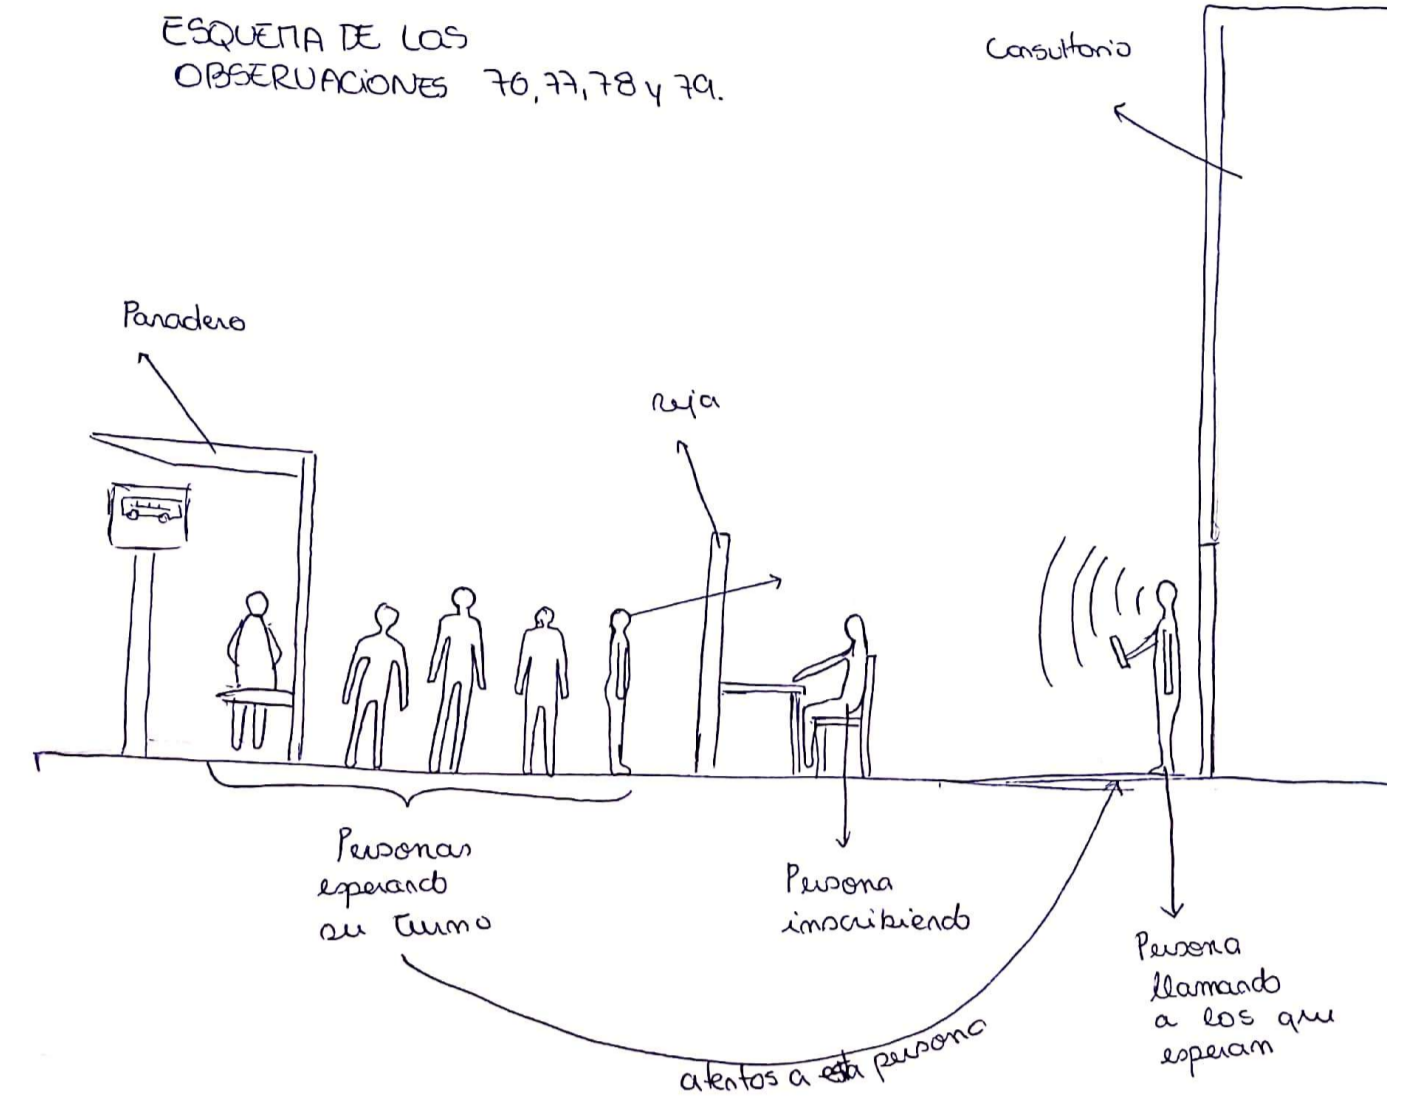 ESQUEMA DE LOS
OBSERVACIONES 76, 77, 78 y 79.
Consultorio
Paradero
reja
Personas
esperando
su turno
Persona
inscribiendo
Persona
llamando
a los que
esperan
atentos a esta persona